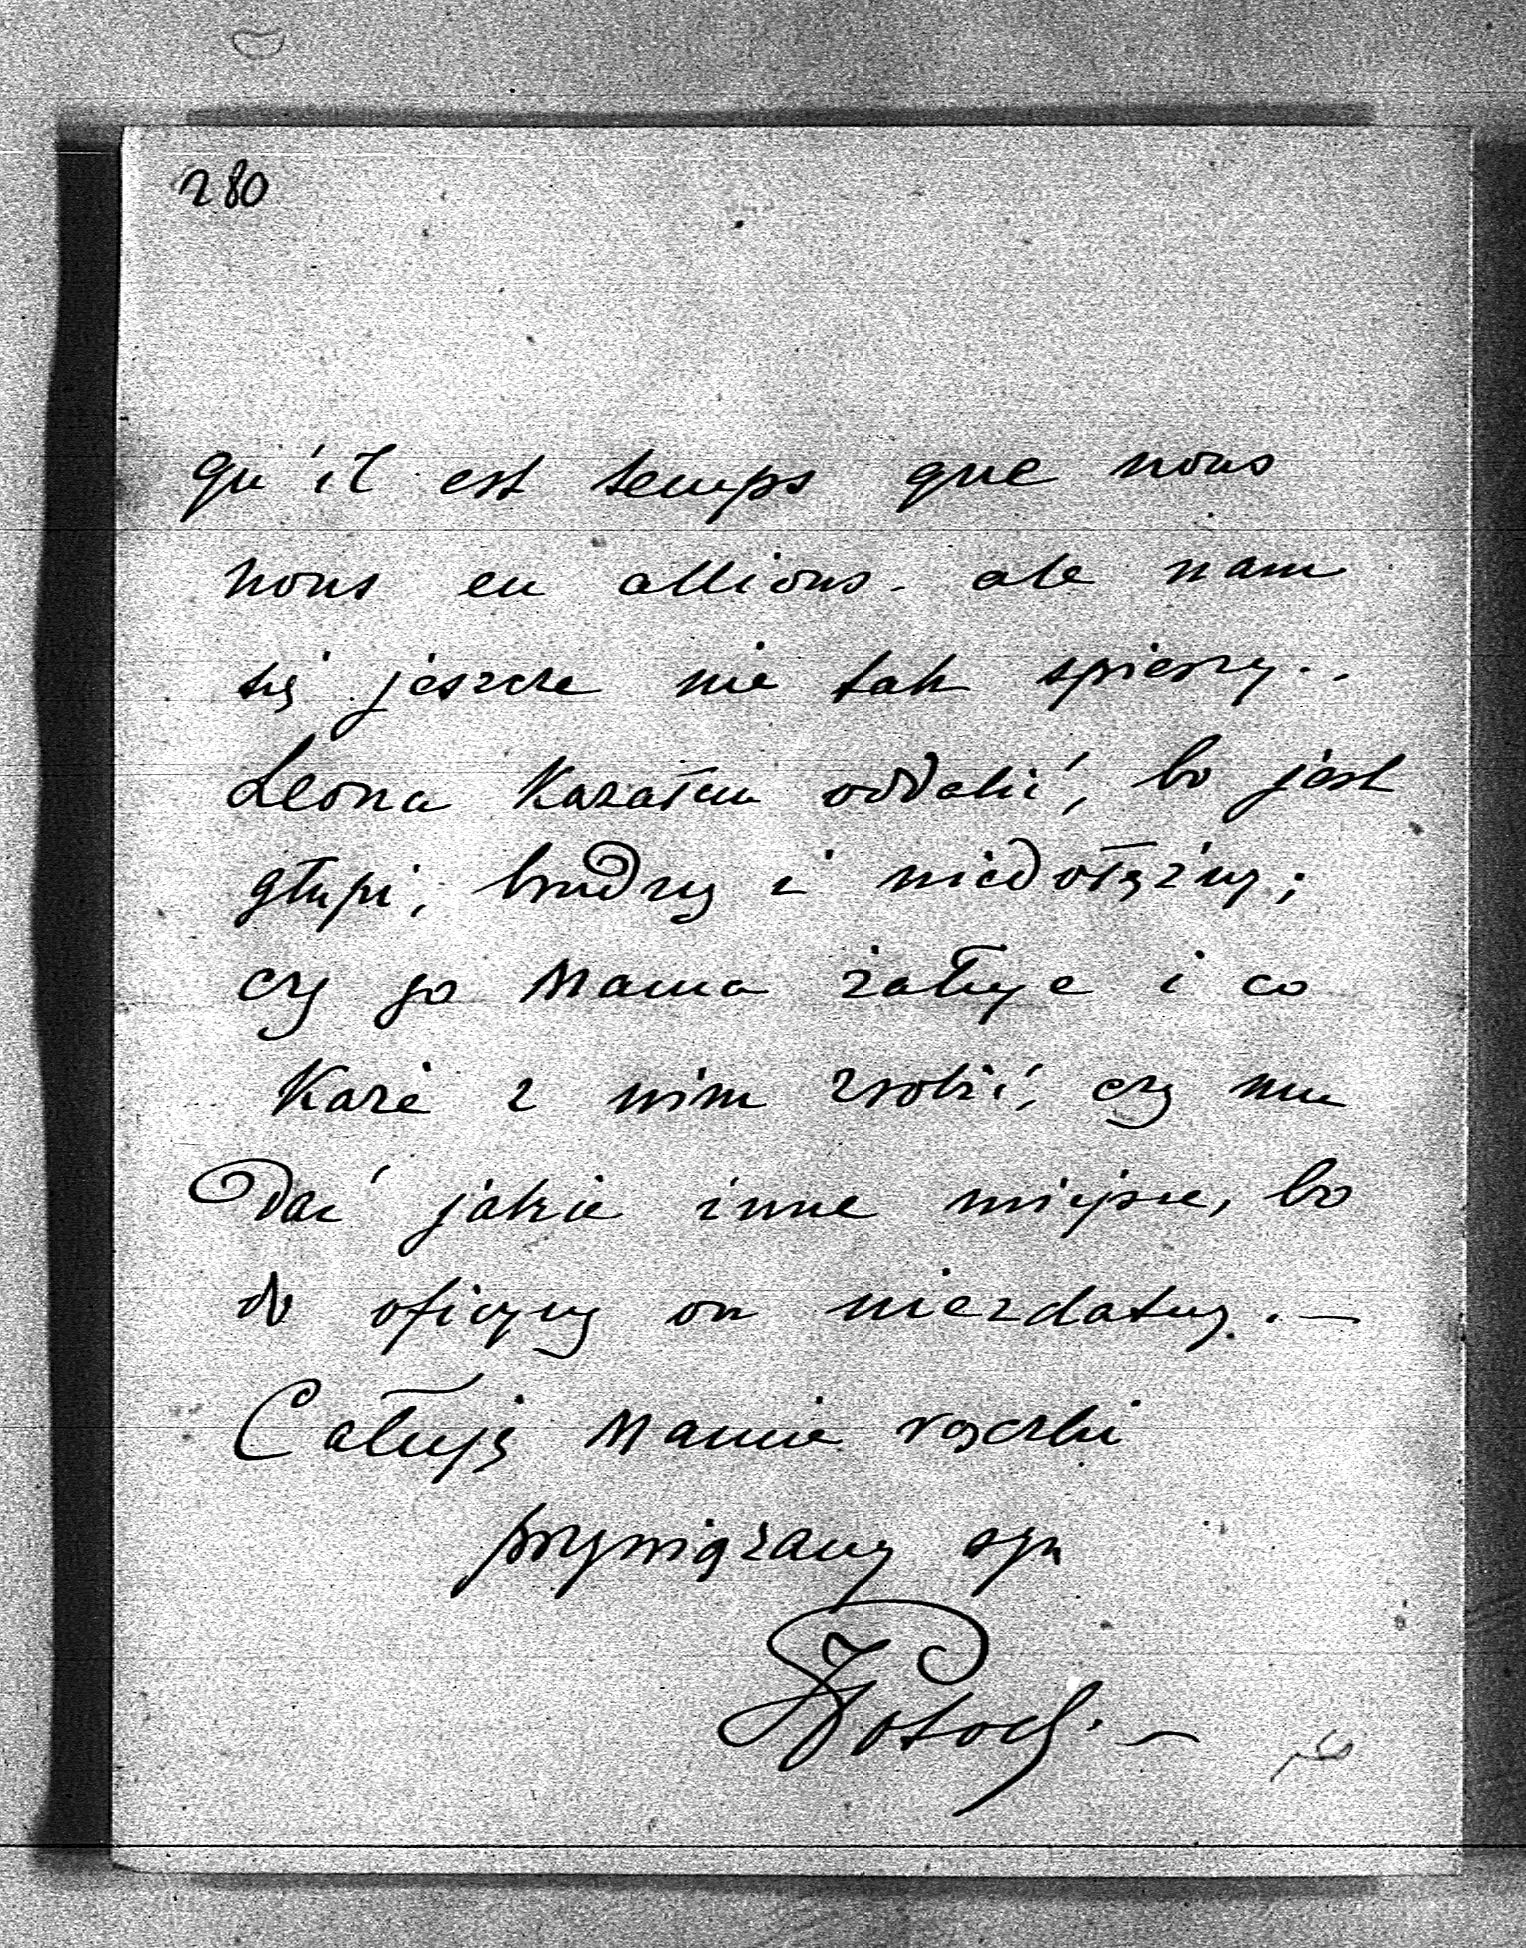 280
qu'il est temps que nous
nous en allions. ale nam
się jeszcze nie tak spieszy..
Leona kazałem oddalić, bo jest
głupi, brudny i niedołężny;
czy go Mama żałuje i co
każe z nim zrobić, czy mu
dać jakie inne miejsce, bo
do oficyny on niezdatny. —
Całuję Mamie rączki
przywiązany syn
Potocki. —